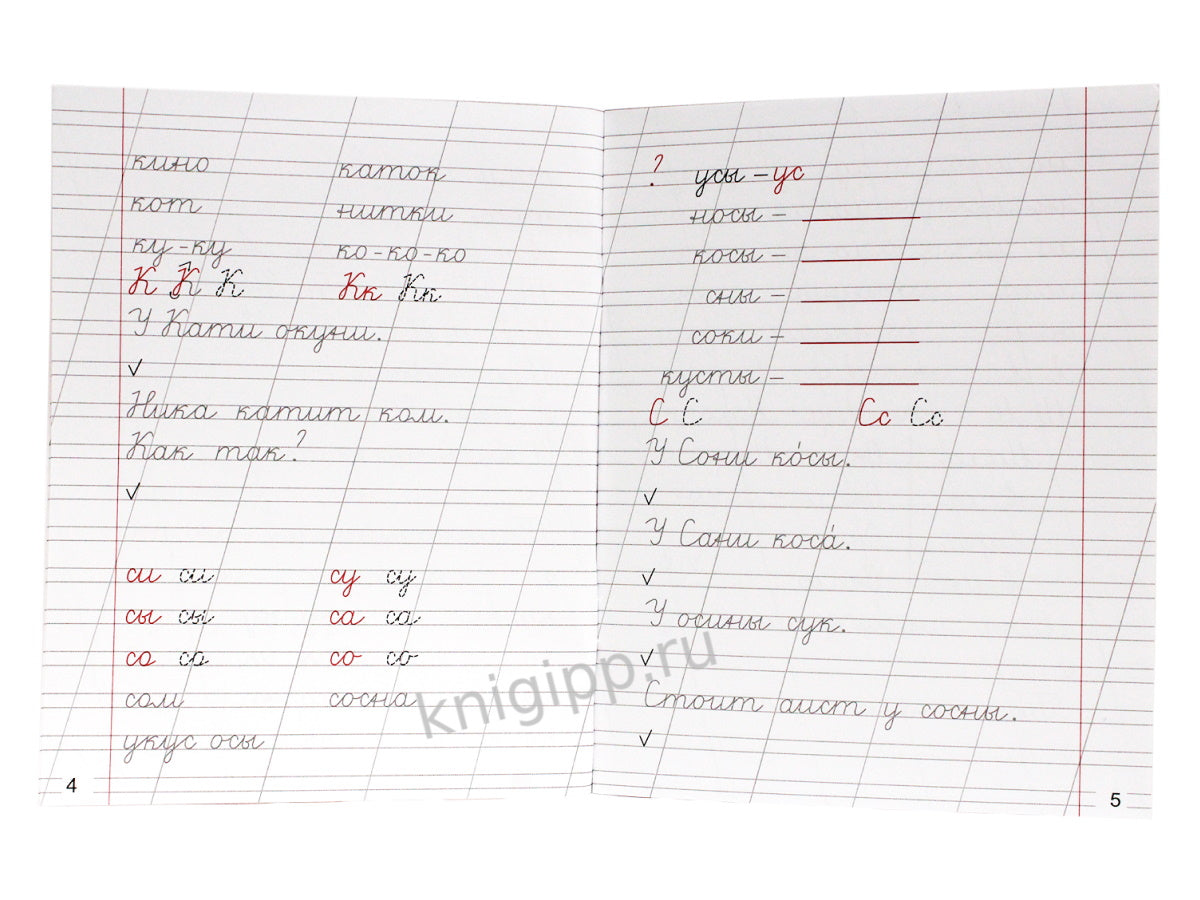 кино каток
кот нитки
ку-ку ко-ко-ко
К К К Кк Кк
У Кати окуни.
Ника катит ком.
Как так?
си си су су
сы сы са са
со со со со
сом сосна
укус осы
4
? усы – ус
носы –
косы –
сны –
соки –
кусты –
С С Сс Сс
У Сони ко́сы.
У Сани коса́.
У осины сук.
Стоит аист у сосны.
5
knigipp.ru